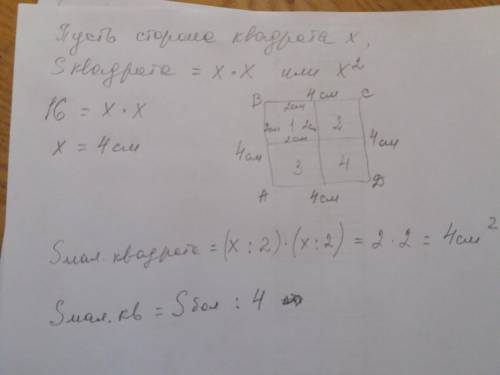 Пусть сторона квадрата x,
S квадрата = x · x или x²
16 = x · x
x = 4 см
B 4 см C
2см
2см 1 2см 2
2см
4см 4см
3 4
A 4см D
Sмал. квадрата = (x : 2) · (x : 2) = 2 · 2 = 4 см²
Sмал. кв = Sбол : 4